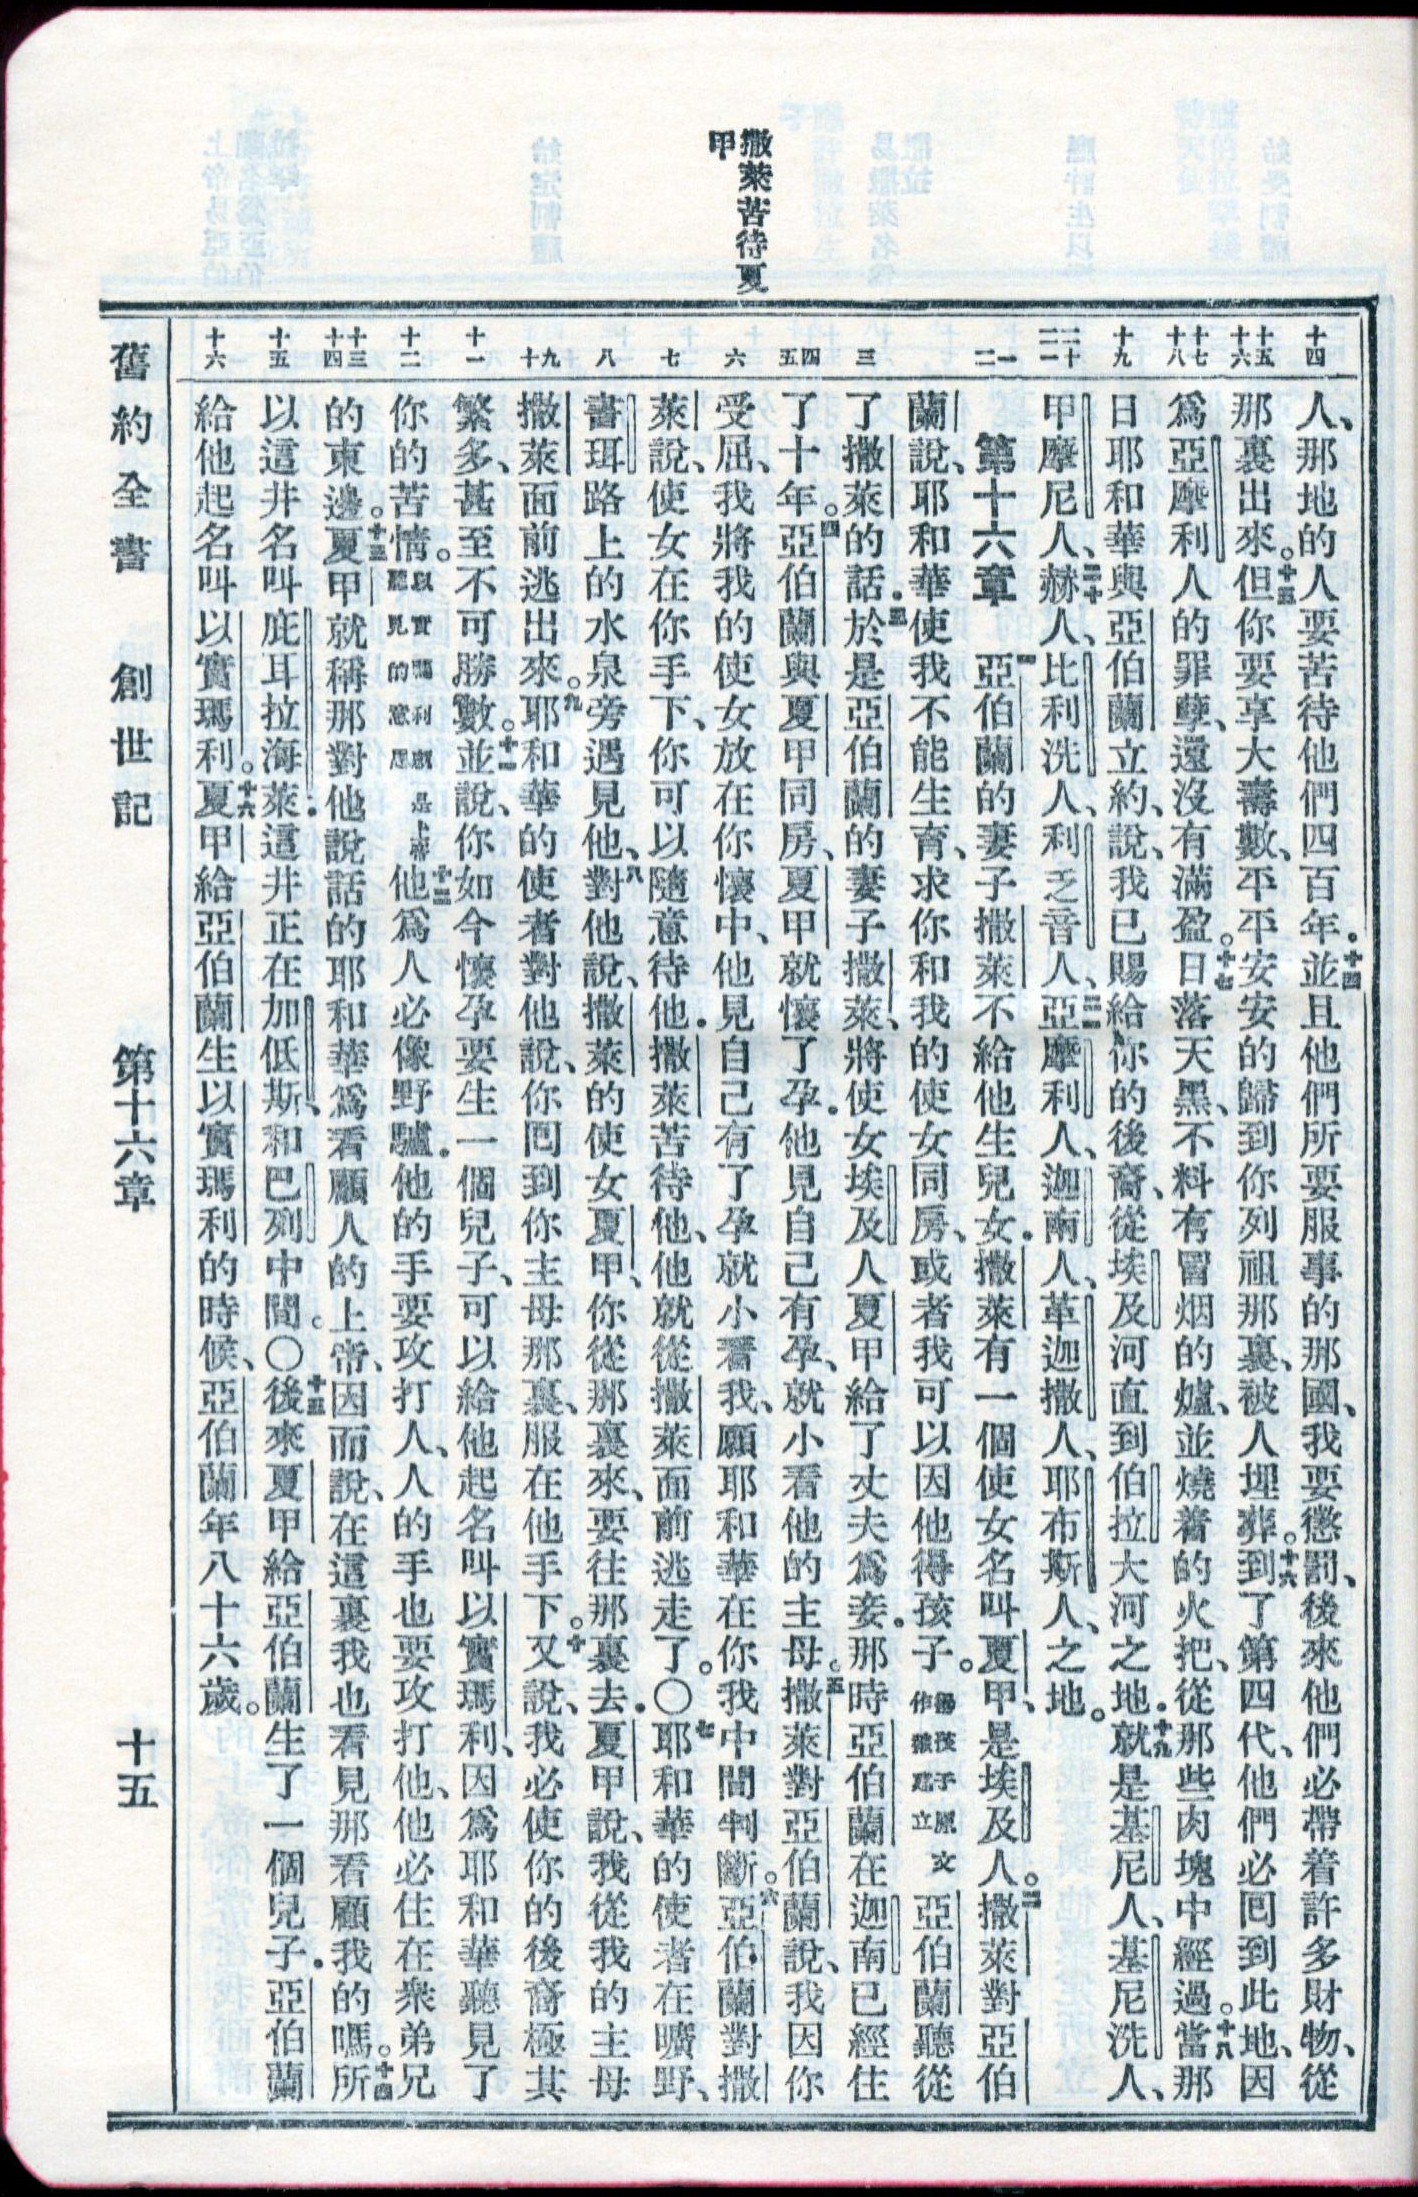 撒萊苦待夏
甲
十四
十五
十六
十七
十八
十九
二十
二一
一
二
三
四
五
六
七
八
九
十
十一
十二
十三
十四
十五
十六
人、那地的人要苦待他們四百年．十四並且他們所要服事的那國、我要懲罰、後來他們必帶着許多財物、從
那裏出來。十五但你要享大壽數、平平安安的歸到你列祖那裏、被人埋葬。十六到了第四代、他們必囘到此地、因
爲亞摩利人的罪孽、還沒有滿盈。十七日落天黑、不料有冒烟的爐、並燒着的火把、從那些肉塊中經過。十八當那
日耶和華與亞伯蘭立約、說、我已賜給你的後裔、從埃及河直到伯拉大河之地．十九就是基尼人、基尼洗人、
甲摩尼人、二十赫人、比利洗人、利乏音人、二一亞摩利人、迦南人、革迦撒人、耶布斯人、之地。
第十六章 一亞伯蘭的妻子撒萊不給他生兒女．撒萊有一個使女名叫夏甲、是埃及人。二撒萊對亞伯
蘭說、耶和華使我不能生育、求你和我的使女同房、或者我可以因他得孩子。得孩子原文作被建立 亞伯蘭聽從
了撒萊的話．三於是亞伯蘭的妻子撒萊、將使女埃及人夏甲給了丈夫爲妾．那時亞伯蘭在迦南已經住
了十年。四亞伯蘭與夏甲同房、夏甲就懷了孕．他見自己有孕、就小看他的主母。五撒萊對亞伯蘭說、我因你
受屈、我將我的使女放在你懷中、他見自己有了孕就小看我、願耶和華在你我中間判斷。六亞伯蘭對撒
萊說、使女在你手下、你可以隨意待他．撒萊苦待他、他就從撒萊面前逃走了。〇七耶和華的使者在曠野、
書珥路上的水泉旁遇見他、八對他說、撒萊的使女夏甲、你從那裏來、要往那裏去．夏甲說、我從我的主母
撒萊面前逃出來。九耶和華的使者對他說、你囘到你主母那裏、服在他手下。十又說、我必使你的後裔極其
繁多、甚至不可勝數。十一並說、你如今懷孕要生一個兒子、可以給他起名叫以實瑪利、因爲耶和華聽見了
你的苦情。以實瑪利就是上帝聽見的意思 十二他爲人必像野驢．他的手要攻打人、人的手也要攻打他、他必住在衆弟兄
的東邊。十三夏甲就稱那對他說話的耶和華爲看顧人的上帝、因而說、在這裏我也看見那看顧我的嗎。十四所
以這井名叫庇耳拉海萊．這井正在加低斯、和巴列中間。〇十五後來夏甲給亞伯蘭生了一個兒子．亞伯蘭
給他起名叫以實瑪利。十六夏甲給亞伯蘭生以實瑪利的時候、亞伯蘭年八十六歲。
舊約全書 創世記 第十六章 十五